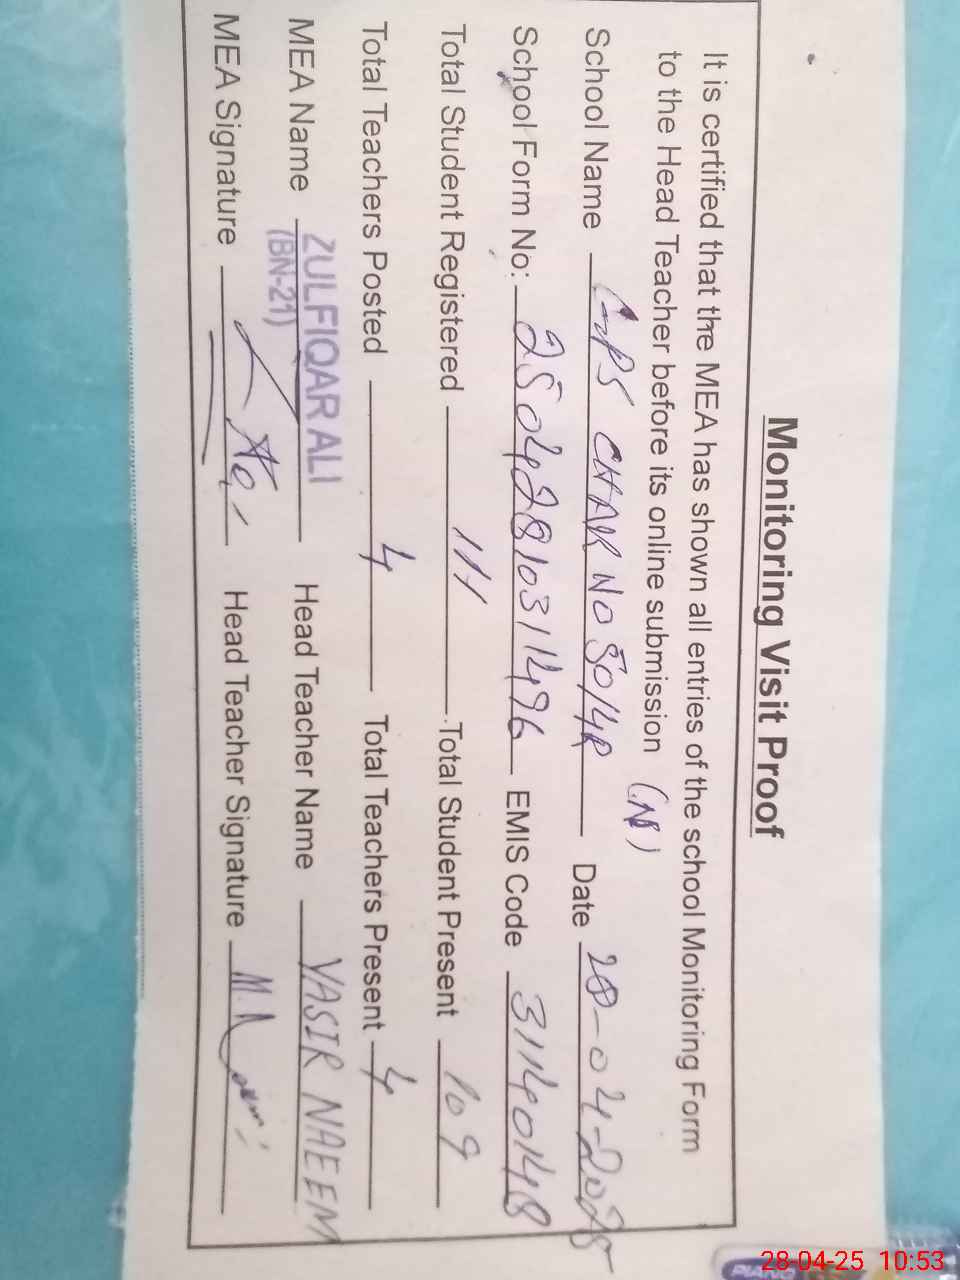 Monitoring Visit Proof
It is certified that the MEA has shown all entries of the school Monitoring Form
to the Head Teacher before its online submission (N)
School Name GPS CHAK NO 50/4R Date 28-04-2025
School Form No: 2504281031496 EMIS Code 31140148
Total Student Registered 111 Total Student Present 109
Total Teachers Posted 4 Total Teachers Present 4
MEA Name ZULFIQAR ALI Head Teacher Name YASIR NAEEM
(BN-21)
MEA Signature Head Teacher Signature
28-04-25 10:53